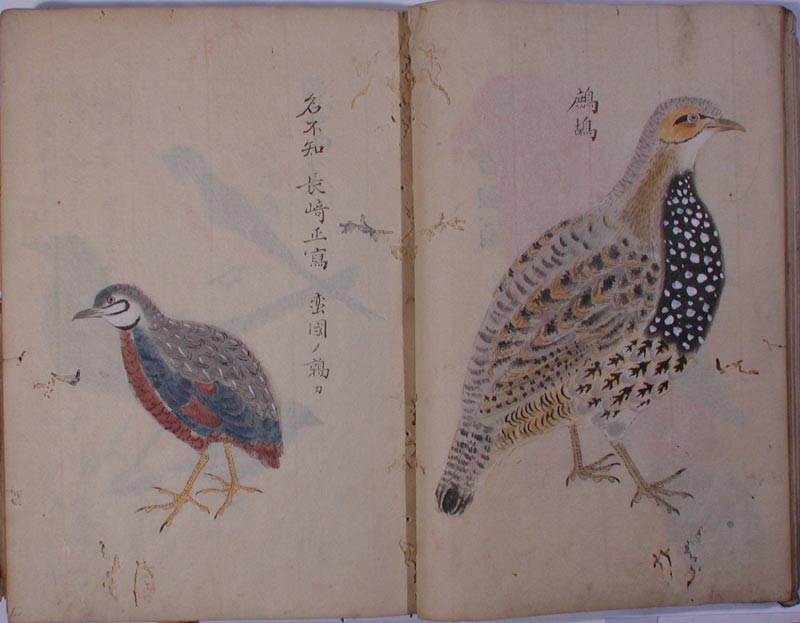 鷓鴣
名不知 長﨑正寫 蛮國ノ鶉カ